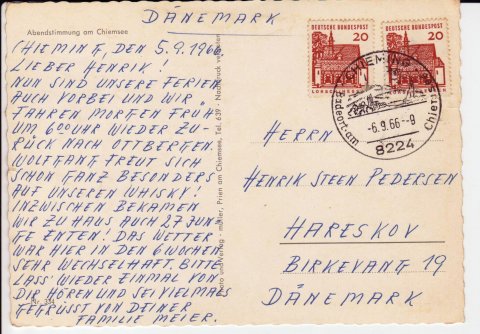 DÄNEMARK
Abendstimmung am Chiemsee
CHIEMING, DEN 5.9.1966
LIEBER HENRIK!
NUN SIND UNSERE FERIEN
AUCH VORBEI UND WIR
FAHREN MORGEN FRÜH
UM 6:00 UHR WIEDER ZU-
RÜCK NACH OTTBERGEN.
WOLFGANG FREUT SICH
SCHON GANZ BESONDERS
AUF UNSEREN WHISKY!
INZWISCHEN BEKAMEN
WIR ZU HAUS AUCH 27 JUN-
GE ENTEN! DAS WETTER
WAR HIER IN DEN 6 WOCHEN
SEHR WECHSELHAFT. BITTE
LASS' WIEDER EINMAL VON
DIR HÖREN UND SEI VIELMALS
GEGRÜSST VON DEINER
FAMILIE MEIER.
Nr. 334
Prien am Chiemsee, Tel. 639 - Nachdruck verboten
DEUTSCHE BUNDESPOST
20
LORSCH
DEUTSCHE BUNDESPOST
20
CHIEMING
Badeort am Chiemsee
-6.9.66--9
8224
HERRN
HENRIK STEEN PEDERSEN
HARESKOV
BIRKEVANG 19
DÄNEMARK